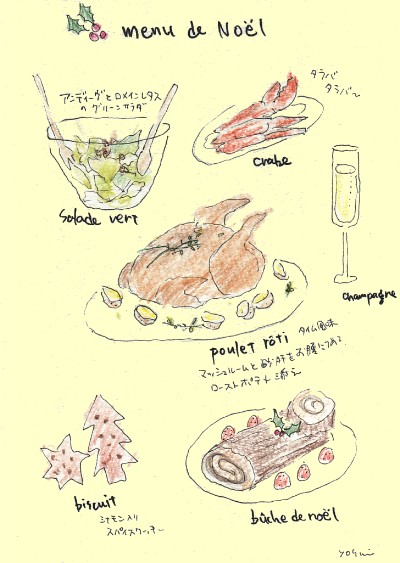 menu de Noël
アンディーヴとロメインレタス
の グリーンサラダ
salade vert
タラバ
タラバ〜
crabe
champagne
poulet rôti タイム風味
マッシュルームと砂肝をお腹につめる
ローストポテト添え
biscuit
シナモン入り
スパイスクッキー
bûche de noël